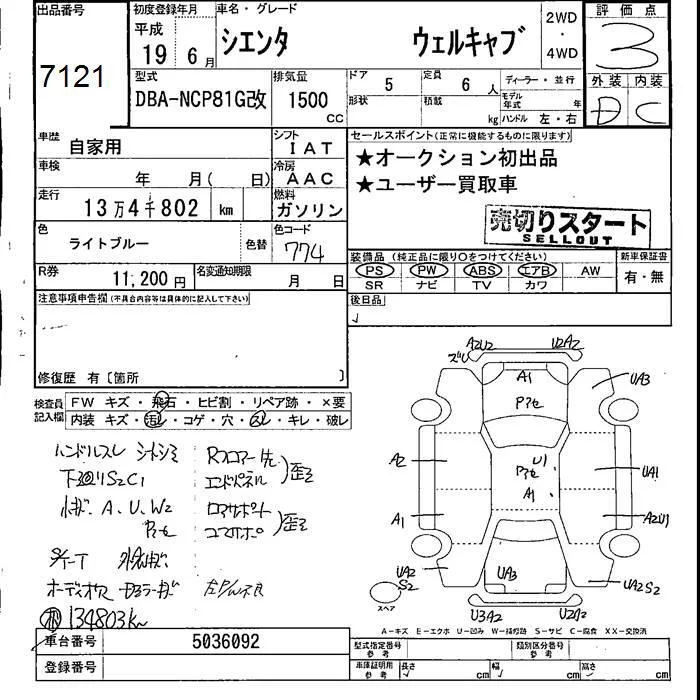 出品番号
7121
初度登録年月
平成
19年6月
車名・グレード
シエンタ ウェルキャブ
2WD
・
4WD
評価点
3
外装 内装
D C
型式
DBA-NCP81G改
排気量
1500
CC
ドア
5
定員
6人
形状
積載
kg
ディーラー・並行
モデル年式 年
ハンドル 左・右
車歴
自家用
シフト
IAT
車検
年 月( 日)
冷房
AAC
走行
13万4千802 km
燃料
ガソリン
色
ライトブルー
色替
色コード
774
R券
11,200円
名変通知期限
月 日
セールスポイント(正常に機能するものに限ります)
★オークション初出品
★ユーザー買取車
売切りスタート
SELLOUT
装備品(純正品に限り○をつけてください)
PS PW ABS エアB AW
SR ナビ TV カワ
新車保証書
有・無
後日品
注意事項申告欄(不具合内容等は具体的に記入して下さい)
修復歴 有〔箇所 〕
検査員記入欄
FW キズ・飛石・ヒビ割・リペア跡・×要
内装 キズ・汚レ・コゲ・穴・スレ・キレ・破レ
ハンドルスレ シートシミ
下廻りS2C1
A、U、W2
Rフロアー先
エンドパネル
歪
歪
134803km
A2U2
U2A2
ズレ
A1
Pアセ
UA3
A2
U1
Pアセ
A1
UA1
A1
A2U1
UA2
S2
UA3
UA2S2
U3A2
U2A2
スペア
A-キズ E-エクボ U-凹み W-補修跡 S-サビ C-腐食 XX-交換済
車台番号
5036092
登録番号
型式指定番号
参考
類別区分番号
参考
車庫証明用
参考
長さ cm
幅 cm
高さ cm